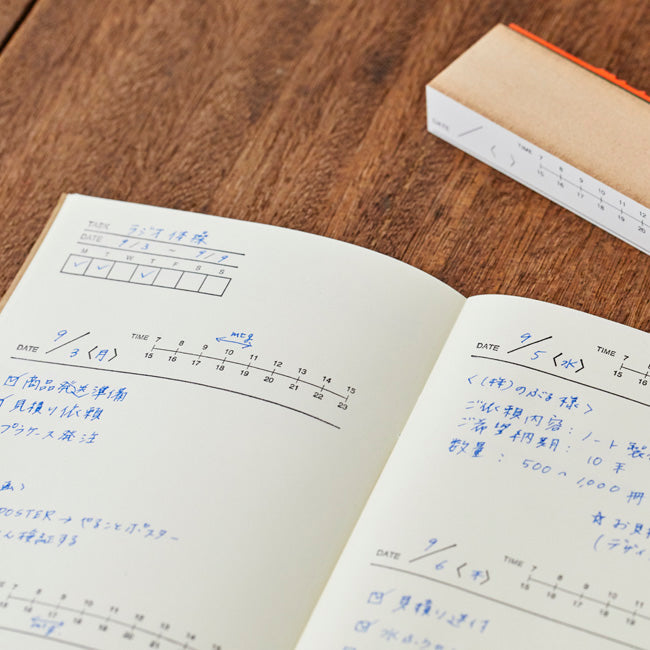 DATE / 〈 〉 TIME 7 8 9 10 11 12
15 16 17 18 19 20
TASK ラジオ体操
DATE 9/3 9/9
M T W T F S S
mtg
DATE 9/3〈月〉 TIME 7 8 9 10 11 12 13 14 15
15 16 17 18 19 20 21 22 23
商品発送準備
見積り依頼
プラケース発注
POSTER→やることポスター
検証する
7 8 9 10 11 12 13 14
15 16 17 18 19 20 21
mtg.
DATE 9/5〈水〉 TIME 7
15 16
〈(株)のぶる様〉
ご依頼内容:ノート製
ご希望納期:10末
数量:500〜1,000冊
☆お見積
(デザイ
DATE 9/6〈木〉 TIME 7 8 9 10
15 16 17 18
見積り送付